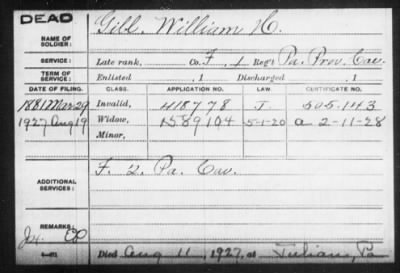 DEAD
NAME OF SOLDIER: Gill, William H.
SERVICE: Late rank, Co. F, 1 Reg't Pa. Prov. Cav.
TERM OF SERVICE: Enlisted , 1 Discharged , 1
DATE OF FILING. CLASS. APPLICATION NO. LAW. CERTIFICATE NO.
1881 Mar 29 Invalid, 418778 J. 505.143
1927 Aug 19 Widow, 1589104 5-1-20 a 2-11-28
Minor,
ADDITIONAL SERVICES: F. 2. Pa. Cav.
REMARKS:
Died Aug 11, 1927, at Julian, Pa